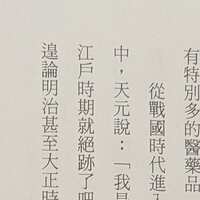 有特別多的醫藥品
從戰國時代進
中，天元說：「我是
江戶時期就絕跡了吧
遑論明治甚至大正時